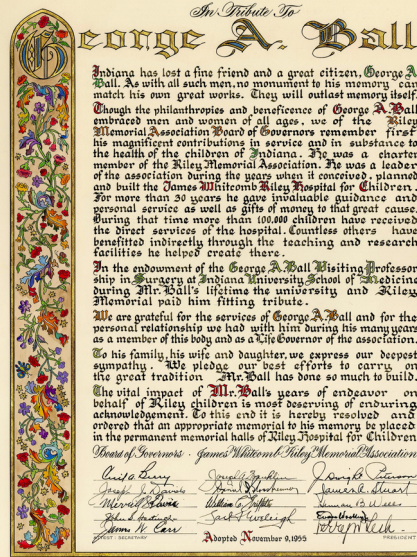 In Tribute To
George A. Ball
Indiana has lost a fine friend and a great citizen, George A
Ball. As with all such men, no monument to his memory can
match his own great works. They will outlast memory itself.
Though the philanthropies and beneficence of George A. Ball
embraced men and women of all ages, we of the Riley
Memorial Association Board of Governors remember first
his magnificent contributions in service and in substance to
the health of the children of Indiana. He was a charter
member of the Riley Memorial Association. He was a leader
of the association during the years when it conceived, planned
and built the James Whitcomb Riley Hospital for Children.
For more than 30 years he gave invaluable guidance and
personal service as well as gifts of money to that great cause.
During that time more than 100,000 children have received
the direct services of the hospital. Countless others have
benefitted indirectly through the teaching and research
facilities he helped create there.
In the endowment of the George A. Ball Visiting Professor
ship in Surgery at Indiana University School of Medicine
during Mr. Ball's lifetime the university and Riley
Memorial paid him fitting tribute.
We are grateful for the services of George A. Ball and for the
personal relationship we had with him during his many years
as a member of this body and as a Life Governor of the association.
To his family, his wife and daughter, we express our deepest
sympathy. We pledge our best efforts to carry on
the great tradition Mr. Ball has done so much to build.
The vital impact of Mr. Ball's years of endeavor on
behalf of Riley children is most deserving of enduring
acknowledgement. To this end it is hereby resolved and
ordered that an appropriate memorial to his memory be placed
in the permanent memorial halls of Riley Hospital for Children
Board of Governors · James Whitcomb Riley Memorial Association
Joseph Franklin
James A. Stuart
Herman B Wells
James W. Carr
ATTEST: SECRETARY
Adopted November 9, 1955
PRESIDENT